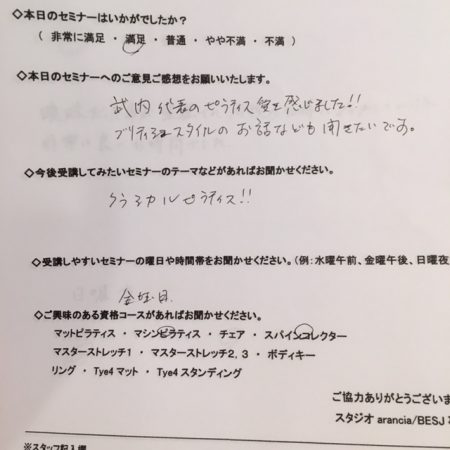 ◇本日のセミナーはいかがでしたか?
( 非常に満足 ・ 満足 ・ 普通 ・ やや不満 ・ 不満 )
◇本日のセミナーへのご意見ご感想をお願いいたします。
武内代表のピラティス愛を感じました!!
ブリティッシュスタイルのお話なども聞きたいです。
◇今後受講してみたいセミナーのテーマなどがあればお聞かせください。
クラシカルピラティス!!
◇受講しやすいセミナーの曜日や時間帯をお聞かせください。(例:水曜午前、金曜午後、日曜夜
◇ご興味のある資格コースがあればお聞かせください。
マットピラティス ・ マシンピラティス ・ チェア ・ スパインコレクター
マスターストレッチ1 ・ マスターストレッチ2, 3 ・ ボディキー
リング ・ Tye4 マット ・ Tye4 スタンディング
ご協力ありがとうございま
スタジオ arancia/BESJ
※スタッフ記入欄